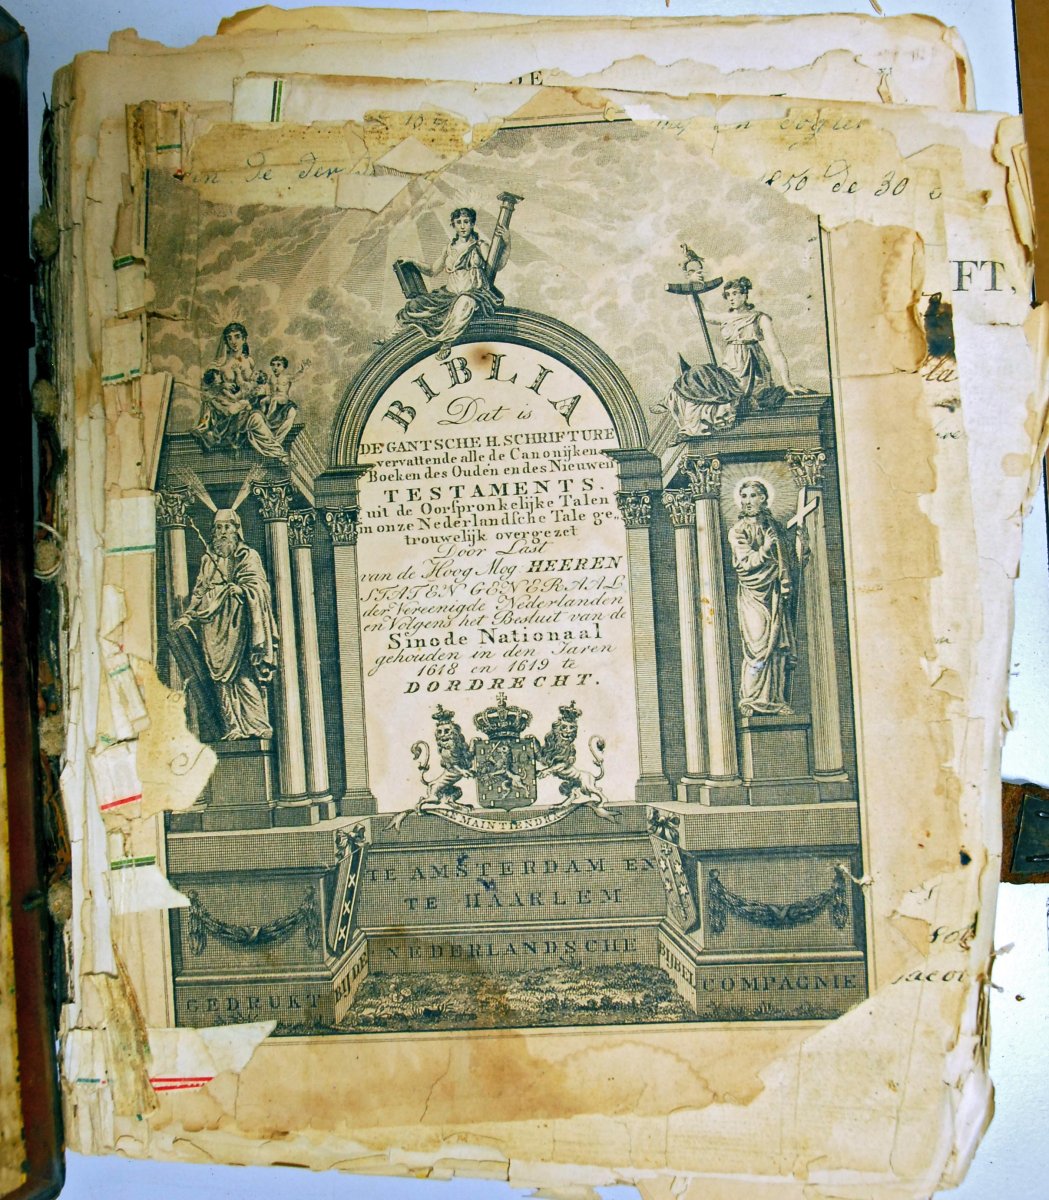 DE
en de der
1850 de 30
FT,
BIBLIA
Dat is
DE GANTSCHE H. SCHRIFTURE
vervattende alle de Canonijken
Boeken des Ouden en des Nieuwen
TESTAMENTS.
uit de Oorspronkelijke Talen
in onze Nederlandsche Tale ge„
trouwelijk overgezet
Door Last
van de Hoog Mog. HEEREN
STATEN GENERAAL
der Vereenigde Nederlanden
en Volgens het Besluit van de
Sinode Nationaal
gehouden in den Jaren
1618 en 1619 te
DORDRECHT.
JE MAINTIENDRAI
TE AMSTERDAM EN
TE HAARLEM
NEDERLANDSCHE
GEDRUKT BIJ DE BIJBEL COMPAGNIE